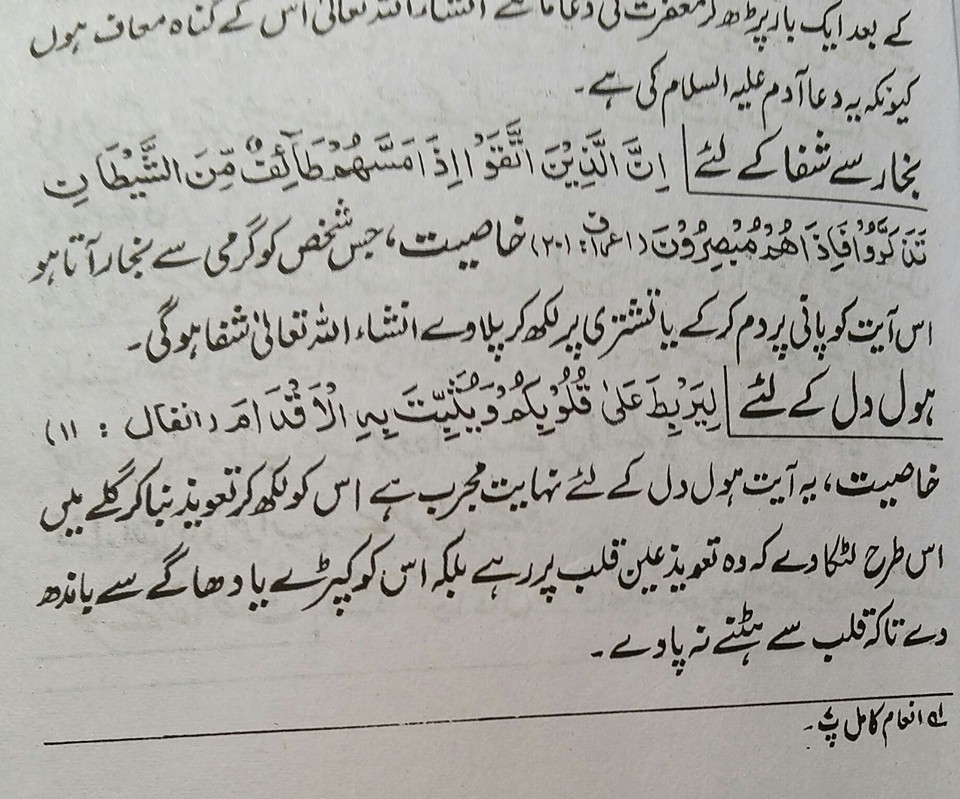 کے بعد ایک بار پڑھ کر مغفرت کی دعا مانگے انشاء اللہ تعالیٰ اس کے گناہ معاف ہوں
کیونکہ یہ دعا آدم علیہ السلام کی ہے۔
بخار سے شفا کے لئے اِنَّ الَّذِیْنَ اتَّقَوْا اِذَا مَسَّھُمْ طَآئِفٌ مِّنَ الشَّیْطَانِ
تَذَکَّرُوْا فَاِذَا ھُمْ مُّبْصِرُوْنَ (اعراف: ۲۰۱) خاصیت، جس شخص کو گرمی سے بخار آتا ہو
اس آیت کو پانی پر دم کر کے یا تشتری پر لکھ کر پلاوے انشاء اللہ تعالیٰ شفا ہوگی۔
ہول دل کے لئے لِیَرْبِطَ عَلیٰ قُلُوْبِکُمْ وَیُثَبِّتَ بِہِ الْاَقْدَامَ (انفال : ۱۱)
خاصیت، یہ آیت ہول دل کے لئے نہایت مجرب ہے اس کو لکھ کر تعویذ بنا کر گلے میں
اس طرح لٹکا دے کہ وہ تعویذ عین قلب پر رہے بلکہ اس کو کپڑے یا دھاگے سے باندھ
دے تاکہ قلب سے ہٹنے نہ پاوے۔
انعام کامل پ۔